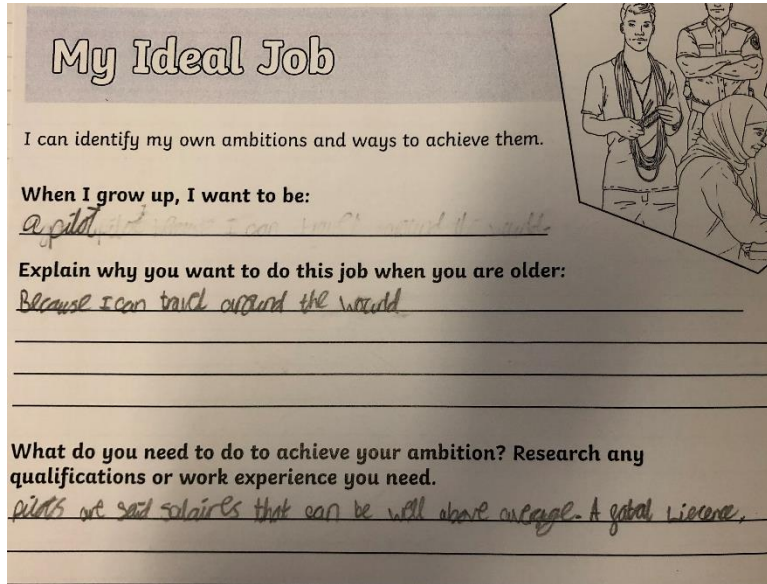 My Ideal Job
I can identify my own ambitions and ways to achieve them.
When I grow up, I want to be:
a pilot
Explain why you want to do this job when you are older:
Because I can travel around the world
What do you need to do to achieve your ambition? Research any
qualifications or work experience you need.
pilots are said solaires that can be well above average. A gobal Liecence,